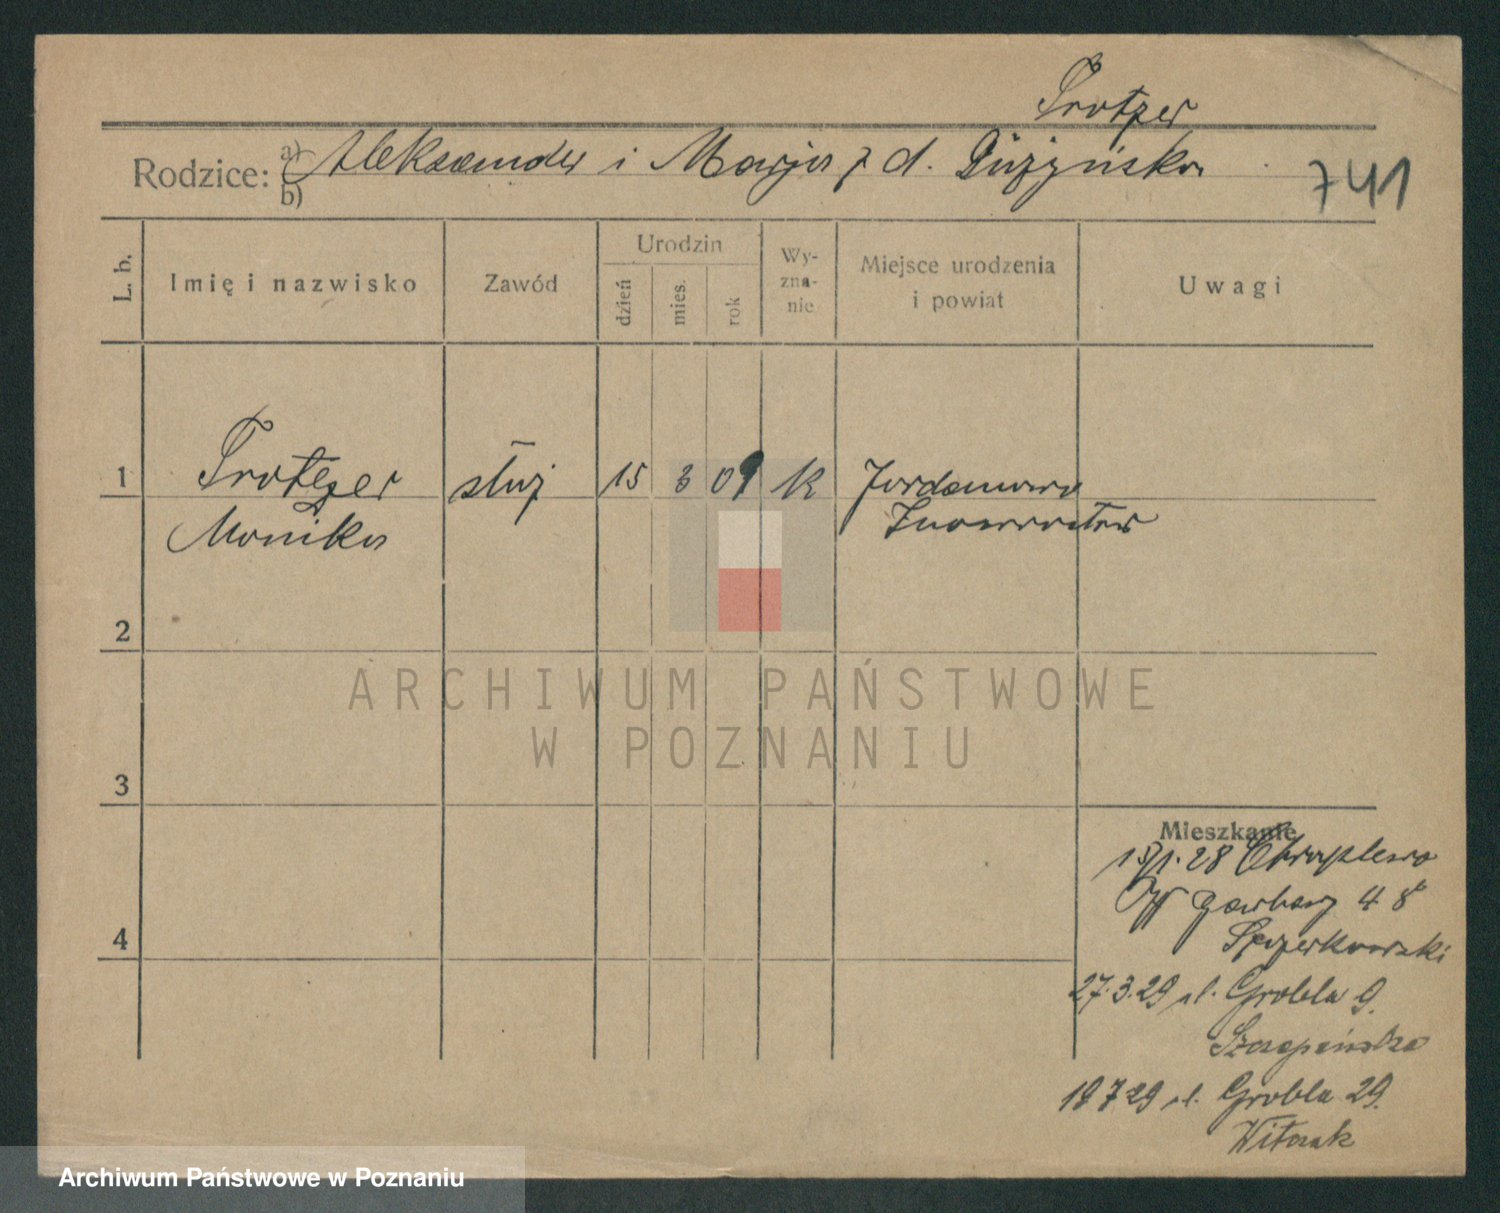 Trotzer
Rodzice: a) Aleksander i Marja z d. Dużyńska
b)
741
L. b.
Imię i nazwisko
Zawód
Urodzin
dzień
mies.
rok
Wy-
zna-
nie
Miejsce urodzenia
i powiat
Uwagi
1 Trotzer służ 15 3 09 k Jordanowo
Monika Inowrocław
2
ARCHIWUM PAŃSTWOWE
W POZNANIU
3
Mieszkanie
15/1.28 Chraplewo
Garbary 48
27.3.29 ul. Grobla 9.
Szczepańska
4
19 7 29 ul. Grobla 29.
Witczak
Archiwum Państwowe w Poznaniu